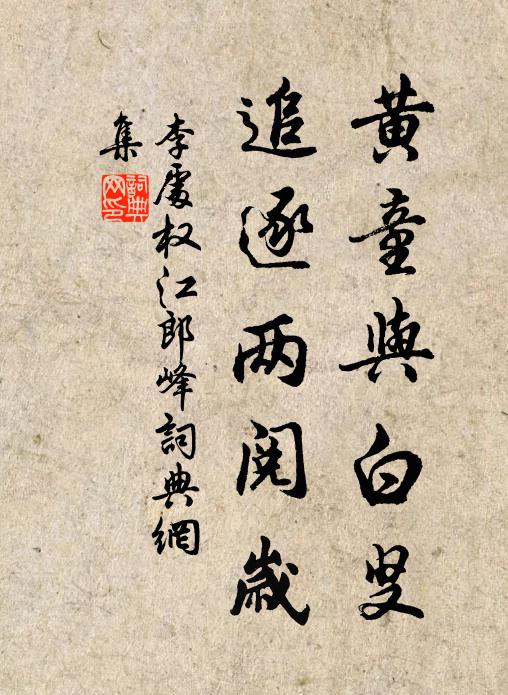 黄童與白叟
追逐两阅歲
李處权江郎峰詞典網
集
詞典网印